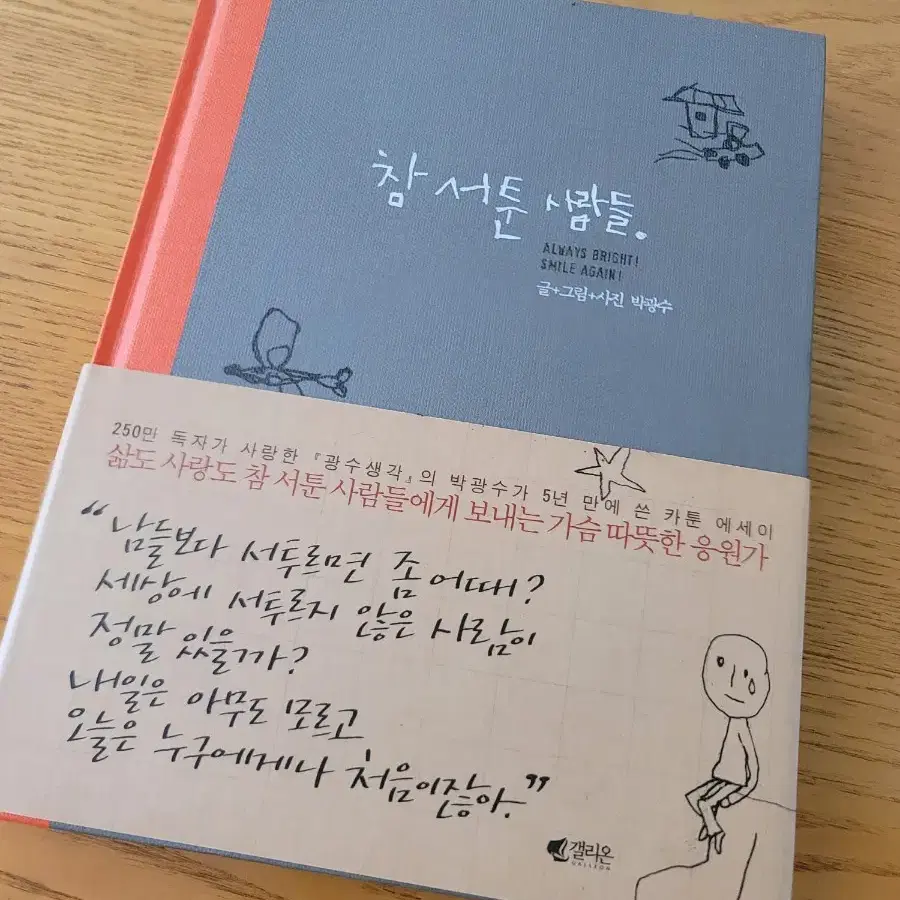 참 서툰 사람들.
ALWAYS BRIGHT!
SMILE AGAIN!
글+그림+사진 박광수
250만 독자가 사랑한 『광수생각』의 박광수가 5년 만에 쓴 카툰 에세이
삶도 사랑도 참 서툰 사람들에게 보내는 가슴 따뜻한 응원가
“남들보다 서투르면 좀 어때?
세상에 서투르지 않은 사람이
정말 있을까?
내일은 아무도 모르고
오늘은 누구에게나 처음이잖아.”
갤리온
GALLEON